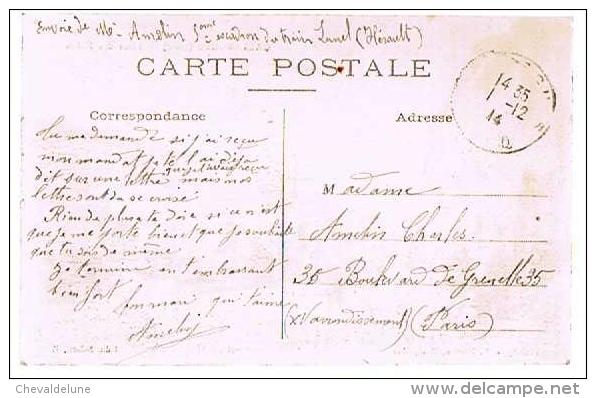 Envoie de Mr Amelin 5eme escadron du train Lunel (Hérault)
CARTE POSTALE
Correspondance
Adresse
14 35
1 -12
14
Tu me demande si j'ai reçu
mon mandat je te l'ai déja
que je l'avais reçu
dit sur une lettre mais nos
lettres ont du se croisé
Rien de plus a te dire si ce n'est
que je me porte bien et que je souhaite
que tu sois de même
Je termine en t'embrassant
bien fort
ton mari qui t'aime
Amelin
Madame
Amelin Charles
35 Boulevard de Grenelle 35
(XV arrondissement) (Paris)
Chevaldelune
delcampe.net